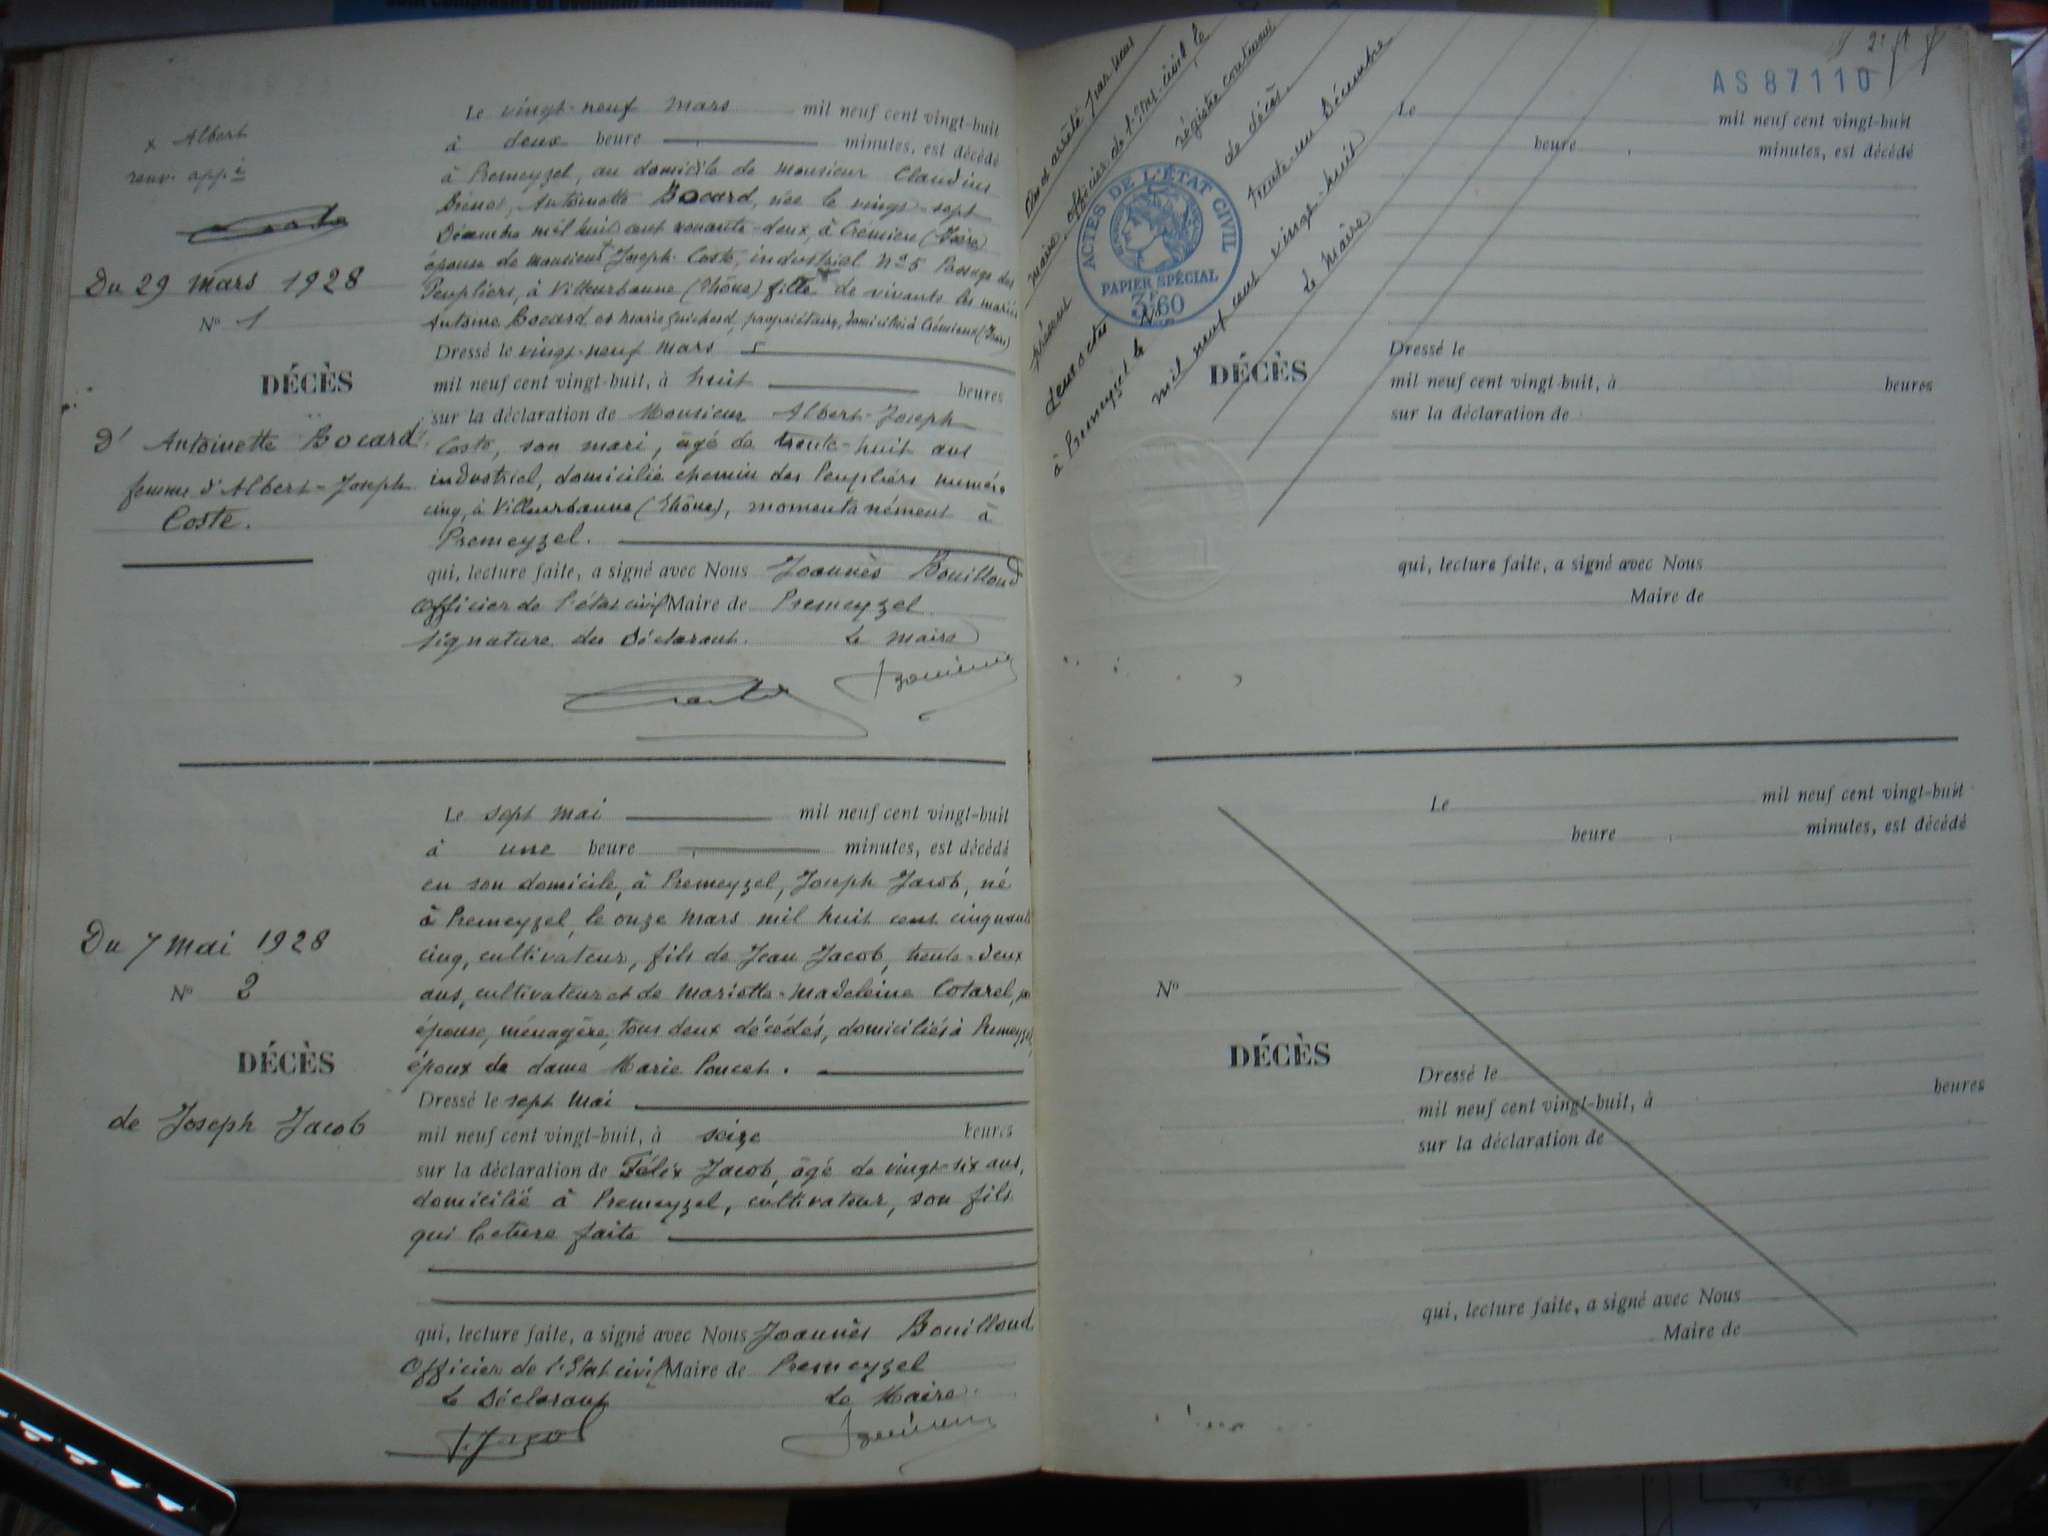 x Albert
renv. app.é
Du 29 mars 1928
N° 1
DÉCÈS
d' Antoinette Bocard
femme d'Albert-Joseph
Coste.
Le vingt-neuf mars mil neuf cent vingt-huit
à deux heure minutes, est décédé
à Premeyzel, au domicile de monsieur Claudius
Antoinette Bocard, née le vingt-sept
Décembre mil huit cent nonante-deux, à Crémieu (Isère)
épouse de monsieur x Joseph Coste, industriel N° 5 Passage des
Peupliers, à Villeurbanne (Rhône) fille de vivants les mariés
Antoine Bocard et marie Guicherd, propriétaires, domiciliés à Crémieu (Isère)
Dressé le vingt-neuf mars
mil neuf cent vingt-huit, à huit heures
sur la déclaration de Monsieur Albert-Joseph
Coste, son mari, âgé de trente-huit ans
industriel, domicilié chemin des Peupliers numéro
cinq, à Villeurbanne (Rhône), momentanément à
Premeyzel.
qui, lecture faite, a signé avec Nous Joannès Bouilloud
Officier de l'état civil Maire de Premeyzel
Signature du Déclarant. Le maire
Coste
Du 7 mai 1928
N° 2
DÉCÈS
de Joseph Jacob
Le sept mai mil neuf cent vingt-huit
à une heure minutes, est décédé
en son domicile, à Premeyzel, Joseph Jacob, né
à Premeyzel, le onze mars mil huit cent cinquante
cinq, cultivateur, fils de Jean Jacob, trente-deux
ans, cultivateur et de Mariette-Madeleine Cotarel,
épouse, ménagère, tous deux décédés, domiciliés à Premeyzel,
époux de dame Marie Poncet.
Dressé le sept mai
mil neuf cent vingt-huit, à seize heures
sur la déclaration de Félix Jacob, âgé de vingt-six ans,
domicilié à Premeyzel, cultivateur, son fils
qui lecture faite
qui, lecture faite, a signé avec Nous Joannès Bouilloud
Officier de l'Etat civil Maire de Premeyzel
Le Déclarant Le Maire
F. Jacob
AS87110
Clos et arrêté par nous
maire, officier de l'état-civil, le
présent régistre contenant
deux actes de décès.
à Premeyzel le trente-un Décembre
mil neuf cent vingt-huit
Le Maire
ACTES DE L'ÉTAT CIVIL
PAPIER SPÉCIAL
3F60
N°
DÉCÈS
Le mil neuf cent vingt-huit
heure minutes, est décédé
Dressé le
mil neuf cent vingt-huit, à heures
sur la déclaration de
qui, lecture faite, a signé avec Nous
Maire de
N°
DÉCÈS
Le mil neuf cent vingt-huit
heure minutes, est décédé
Dressé le
mil neuf cent vingt-huit, à heures
sur la déclaration de
qui, lecture faite, a signé avec Nous
Maire de